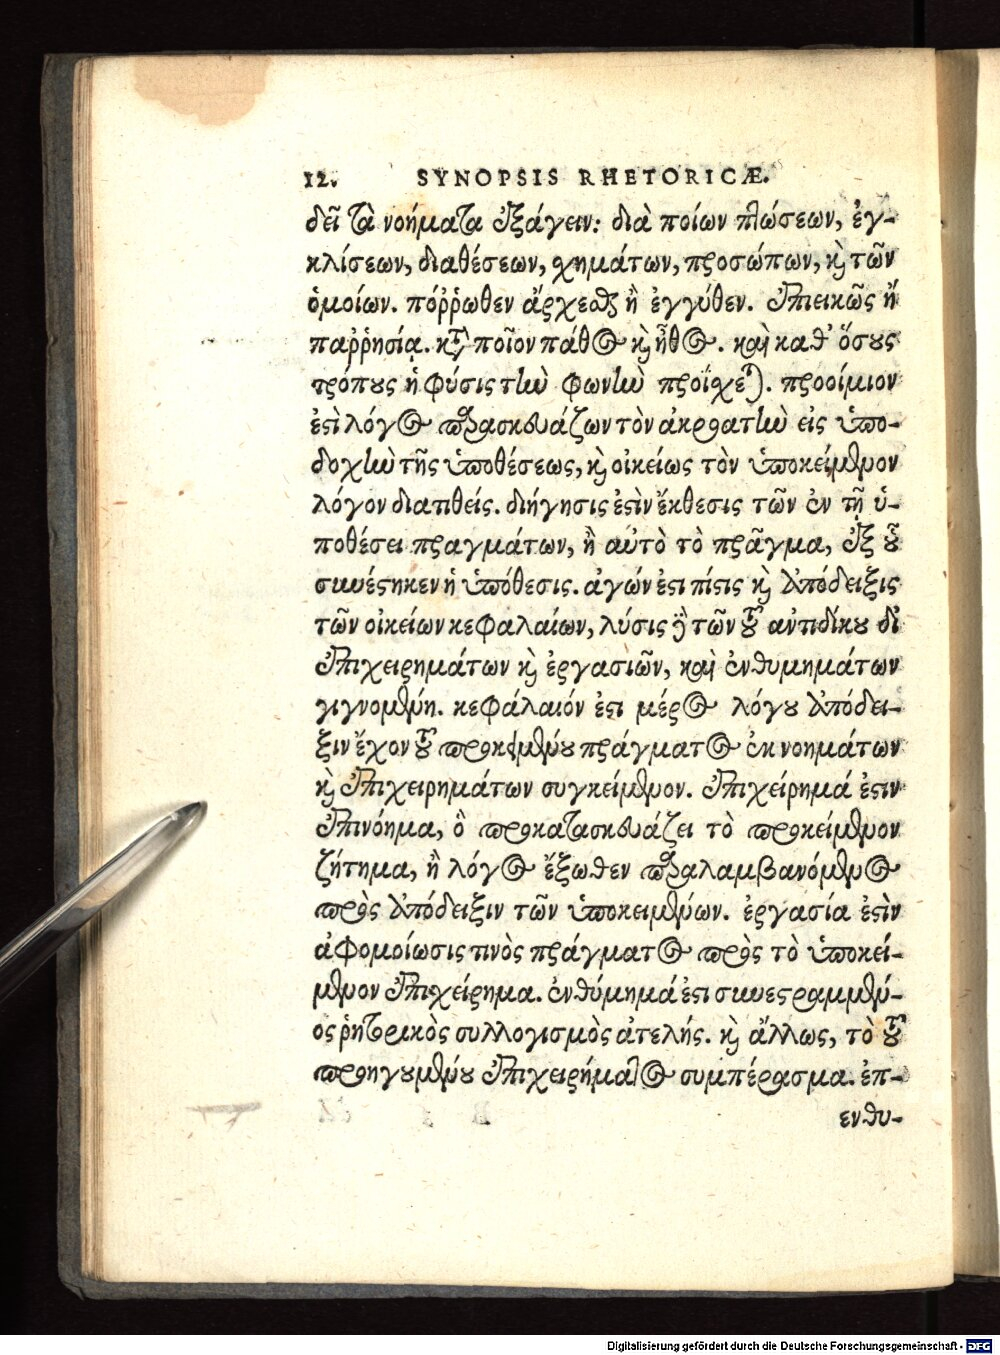 12. SYNOPSIS RHETORICÆ.
δεῖ τὰ νοήματα ἐξάγειν: διὰ ποίων πλώσεων, ἐγ-
κλίσεων, διαθέσεων, σχημάτων, προσώπων, καὶ τῶν
ὁμοίων. πόῤῥωθεν ἄρχεσθαι ἢ ἐγγύθεν. ἐπιεικῶς ἢ
παῤῥησίᾳ. κατὰ ποῖον πάθος καὶ ἦθος. καὶ καθ' ὅσους
τρόπους ἡ φύσις τὴν φωνὴν προΐσχεται. προοίμιον
ἐστὶ λόγος παρασκευάζων τὸν ἀκροατὴν εἰς ὑπο-
δοχὴν τῆς ὑποθέσεως, καὶ οἰκείως τὸν ὑποκείμενον
λόγον διατιθείς. διήγησις ἐστὶν ἔκθεσις τῶν ἐν τῇ ὑ-
ποθέσει πραγμάτων, ἢ αὐτὸ τὸ πρᾶγμα, ἐξ οὗ
συνέστηκεν ἡ ὑπόθεσις. ἀγών ἐστι πίστις καὶ ἀπόδειξις
τῶν οἰκείων κεφαλαίων, λύσις δὲ τῶν τοῦ ἀντιδίκου δι'
ἐπιχειρημάτων καὶ ἐργασιῶν, καὶ ἐνθυμημάτων
γιγνομένη. κεφάλαιόν ἐστι μέρος λόγου ἀπόδει-
ξιν ἔχον τοῦ προκειμένου πράγματος ἐκ νοημάτων
καὶ ἐπιχειρημάτων συγκείμενον. ἐπιχείρημά ἐστιν
ἐπινόημα, ὃ προκατασκευάζει τὸ προκείμενον
ζήτημα, ἢ λόγος ἔξωθεν παραλαμβανόμενος
πρὸς ἀπόδειξιν τῶν ὑποκειμένων. ἐργασία ἐστὶν
ἀφομοίωσις τινὸς πράγματος πρὸς τὸ ὑποκεί-
μενον ἐπιχείρημα. ἐνθύμημά ἐστι συνεστραμμέν-
ος ῥητορικὸς συλλογισμὸς ἀτελής. καὶ ἄλλως, τὸ τοῦ
προηγουμένου ἐπιχειρήματος συμπέρασμα. ἐπ-
ενθυ-
Digitalisierung gefördert durch die Deutsche Forschungsgemeinschaft - DFG